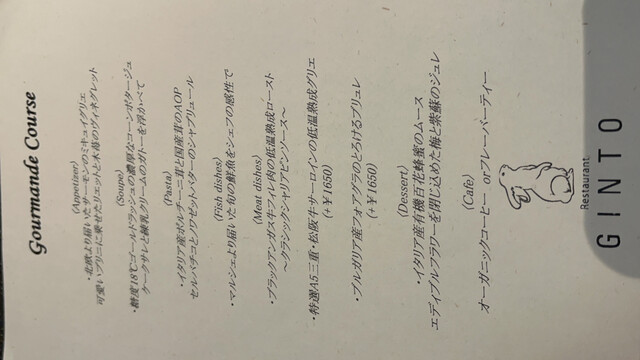 Gourmande Course
(Appetizer)
・北欧より届いたサーモンのミキュイグリエ
可愛いブリニに乗せたリエットと木苺のヴィネグレット
(Soupe)
・糖度18℃ゴールドラッシュの濃厚なコーンポタージュ
ケークサレと練乳クリームのガトーを浮かべて
(Pasta)
・イタリア産ポルチーニ茸と国産茸のAOP
セルバチコとノワゼットバターのシャプリュール
(Fish dishes)
・マルシェより届いた旬の鮮魚をシェフの感性で
(Meat dishes)
・ブラックアンガス牛フィレ肉の低温熟成ロースト
～クラシックシャリアピンソース～
・特選A5三重・松阪牛サーロインの低温熟成グリエ
(+￥1650)
・ブルガリア産フォアグラのとろけるブリュレ
(+￥1650)
(Dessert)
・イタリア産有機百花蜂蜜のムース
エディブルフラワーを閉じ込めた梅と紫蘇のジュレ
(Cafe)
オーガニックコーヒー orフレーバーティー
Restaurant
GINTO